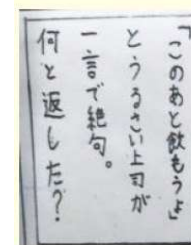 「このあと飲もうよ」
とうるさい上司が
一言で絶句。
何と返した？